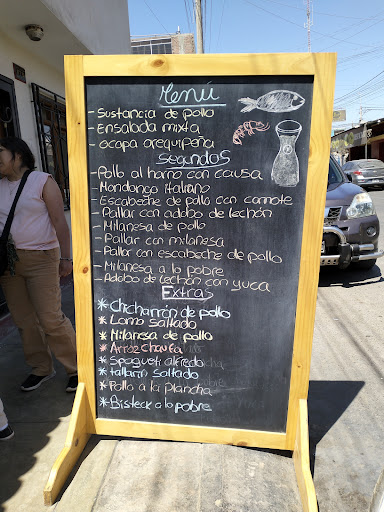 Menú
- Sustancia de pollo
- Ensalada mixta
- ocapa arequipeña
Segundos
- Pollo al horno con causa
- Mondongo Italiano
- Escabeche de pollo con camote
- Pallar con adobo de lechón
- Milanesa de pollo
- Pallar con milanesa
- Pallar con escabeche de pollo
- Milanesa a lo pobre
- Adobo de lechón con yuca
Extras
* Chicharrón de pollo
* Lomo saltado
* Milanesa de pollo
* Arroz chaufa
* Spagueti alfredo
* tallarin saltado
* Pollo a la plancha
* Bisteck a lo pobre